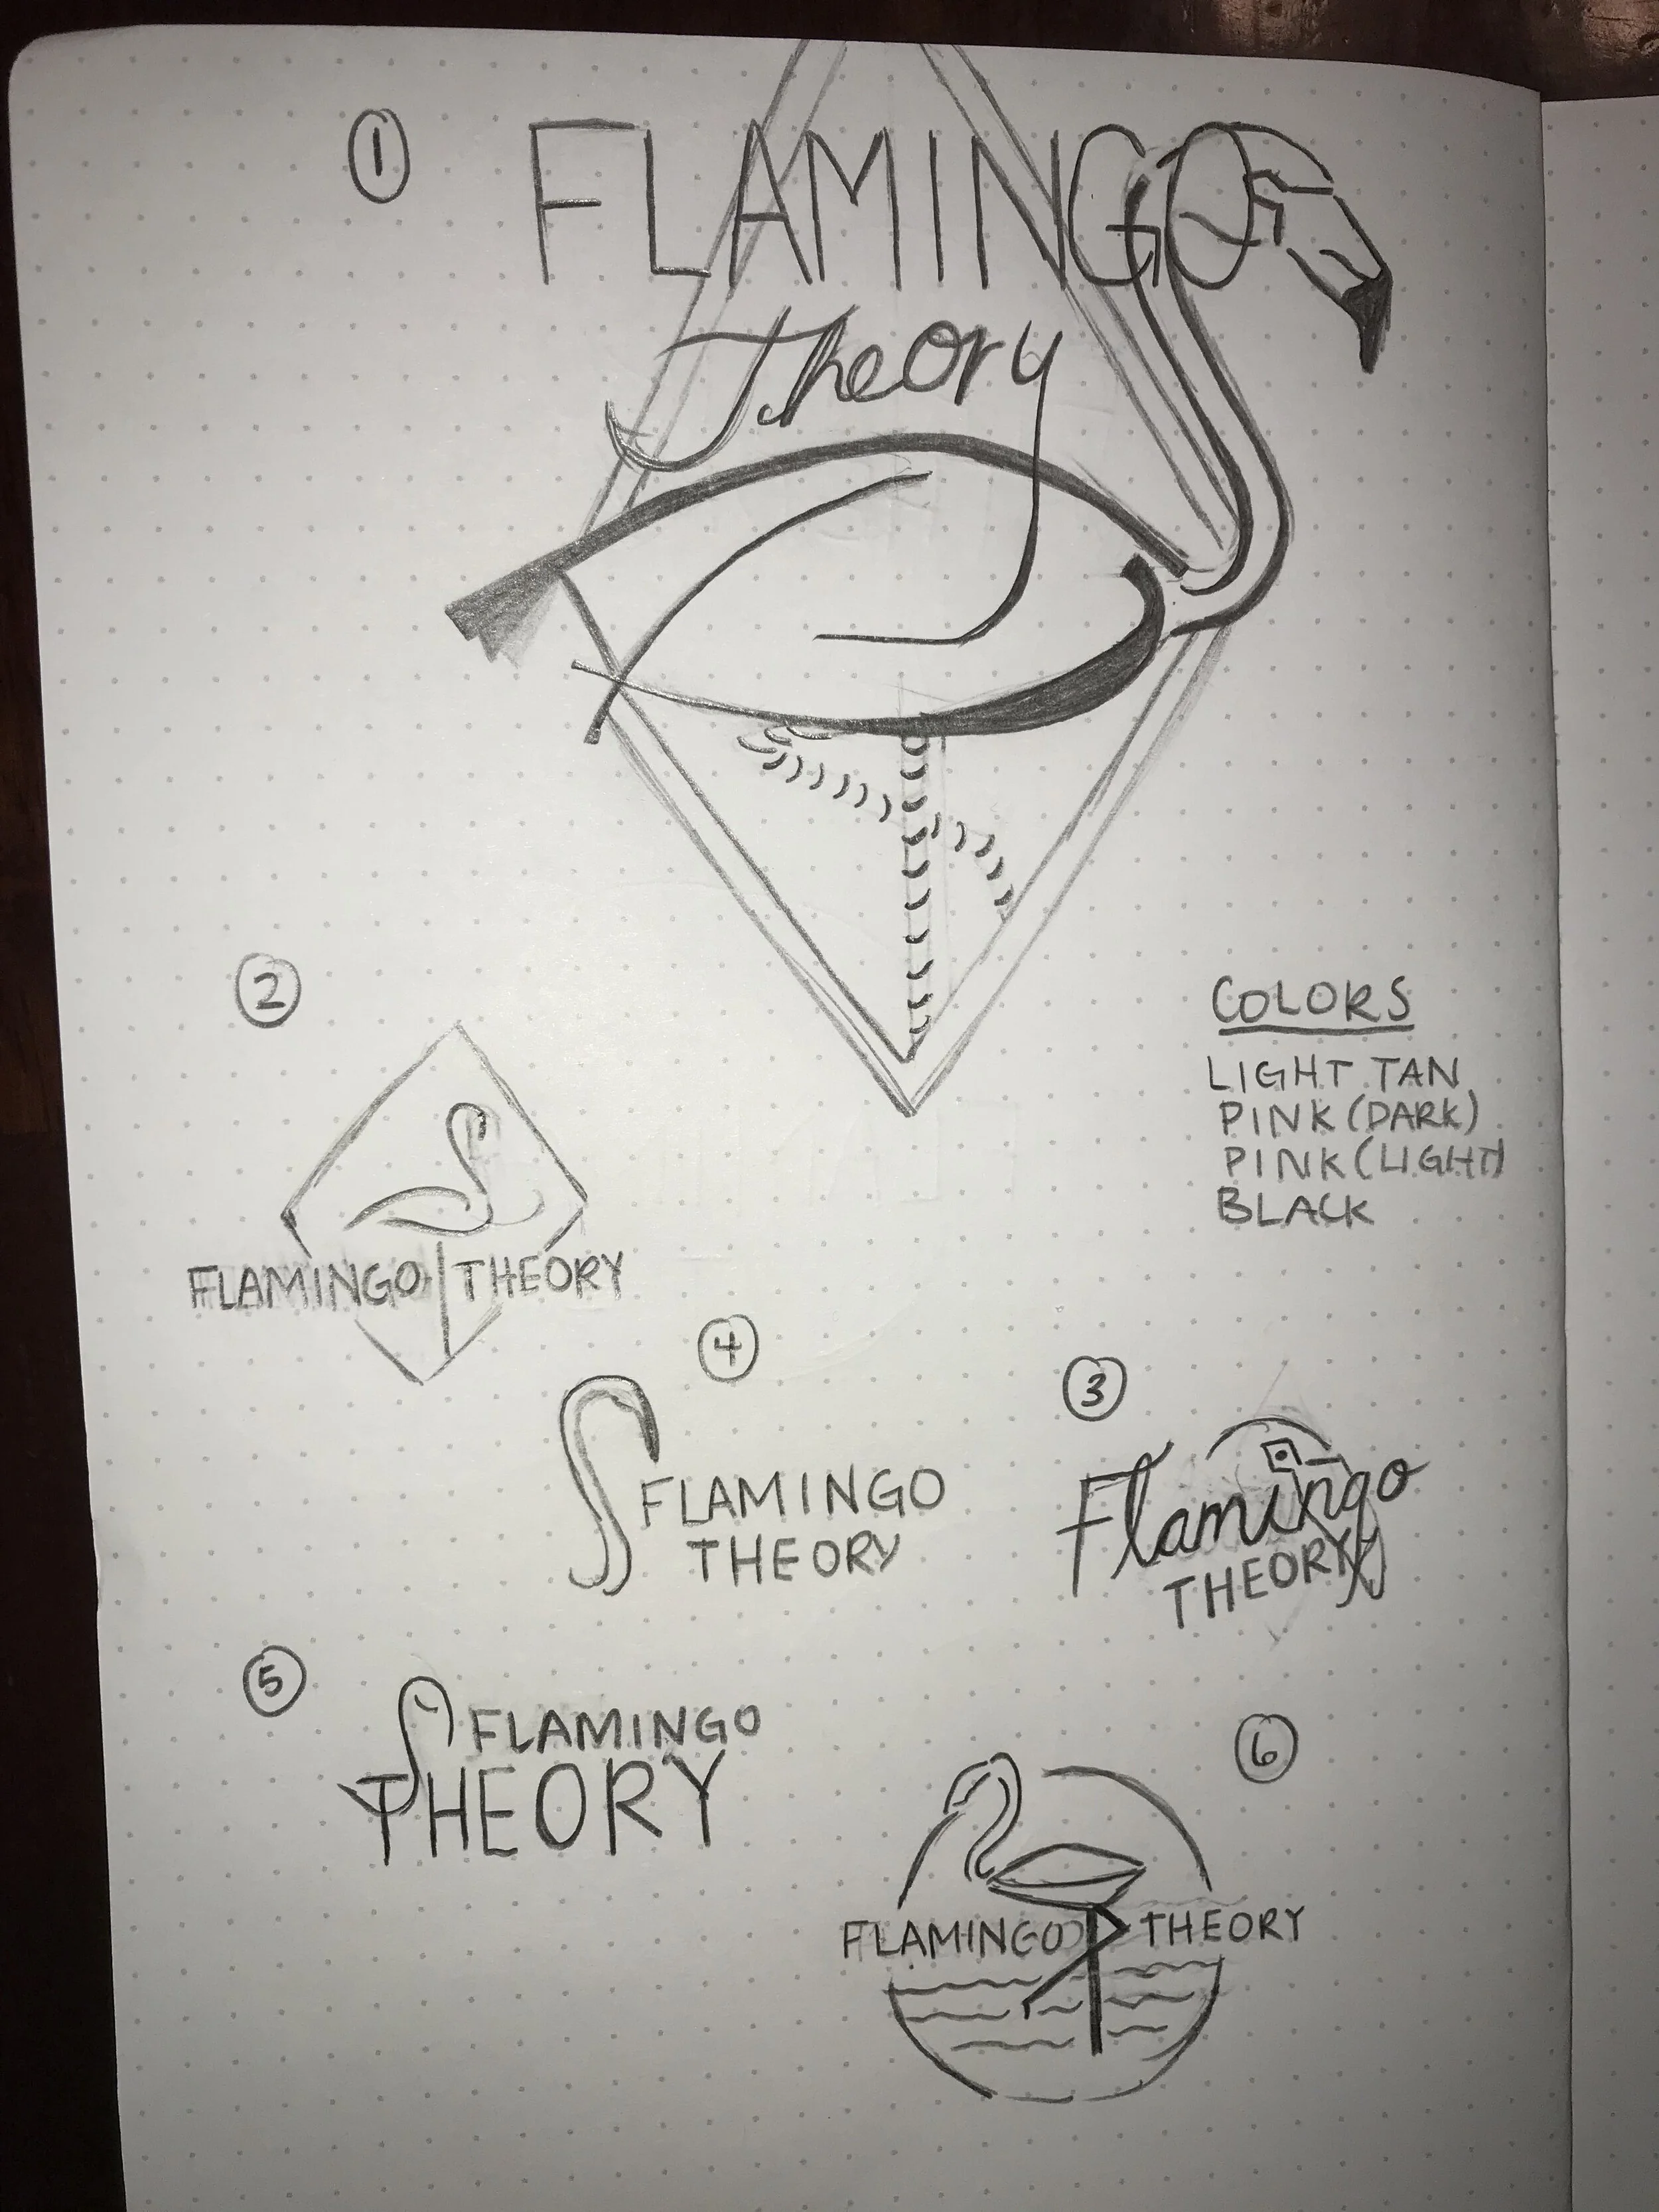 1
FLAMINGO
Theory
2
FLAMINGO THEORY
COLORS
LIGHT TAN
PINK (DARK)
PINK (LIGHT)
BLACK
4
FLAMINGO
THEORY
3
Flamingo
THEORY
5
FLAMINGO
THEORY
6
FLAMINGO THEORY